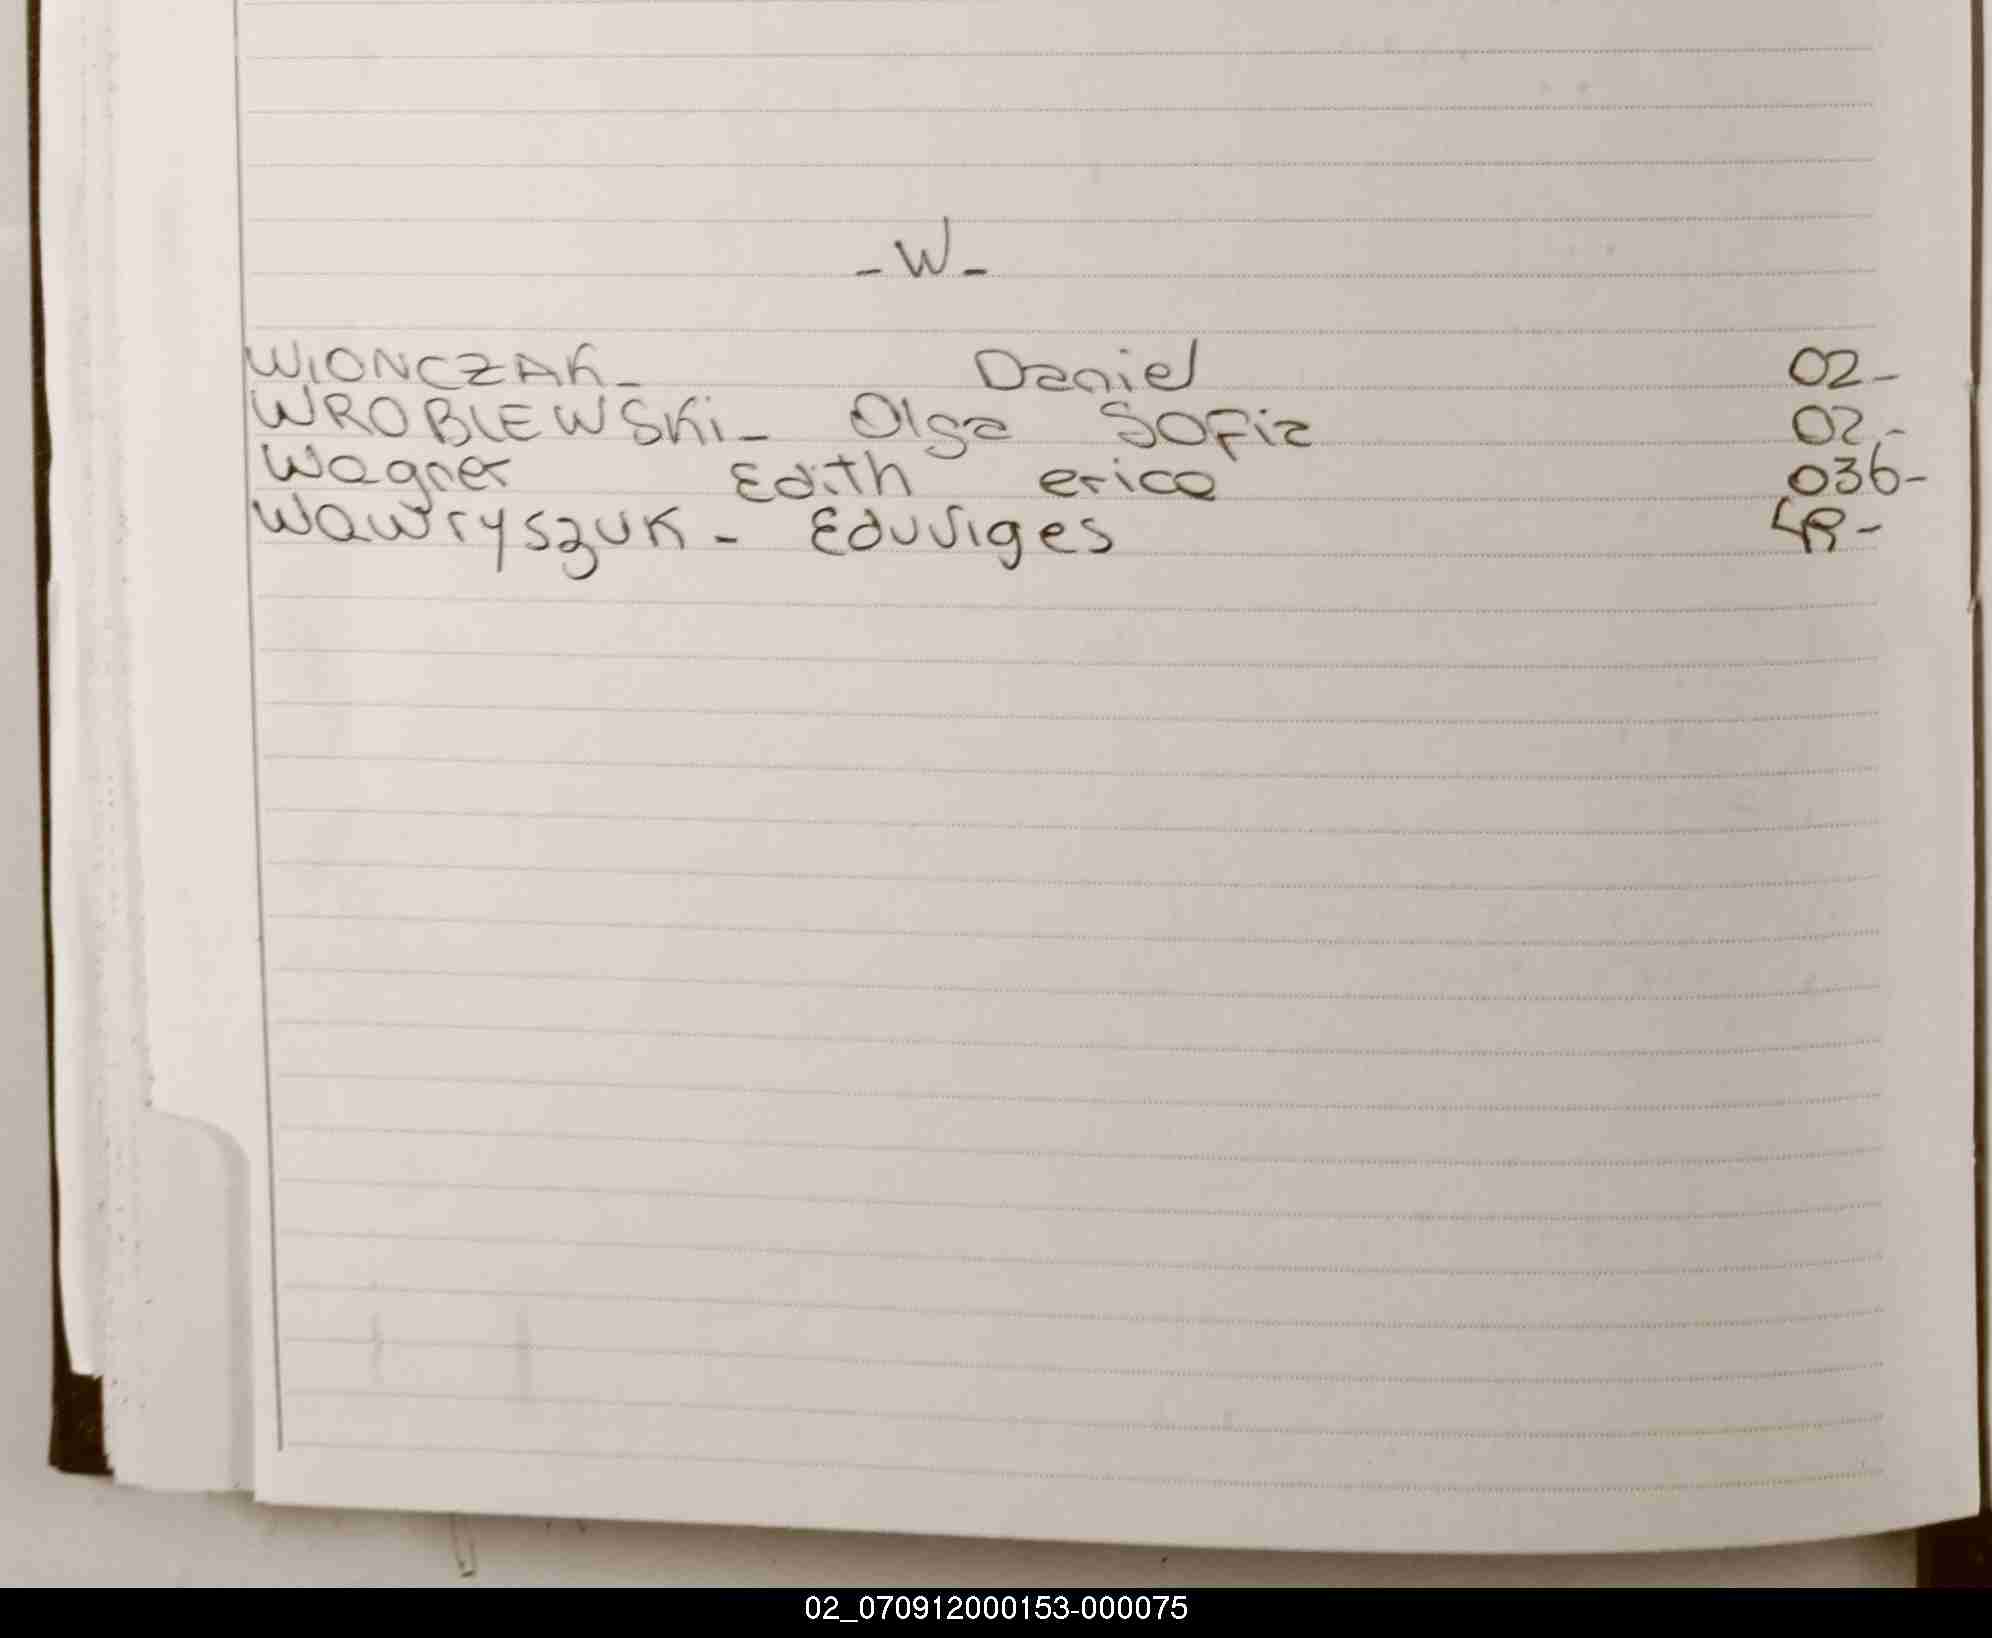 - W -
WIONCZAK - Daniel 02 -
WROBLEWSKi - Olga SOFia 02 -
Wagner Edith erica 036 -
Wawryszuk - Eduviges -
02_070912000153-000075